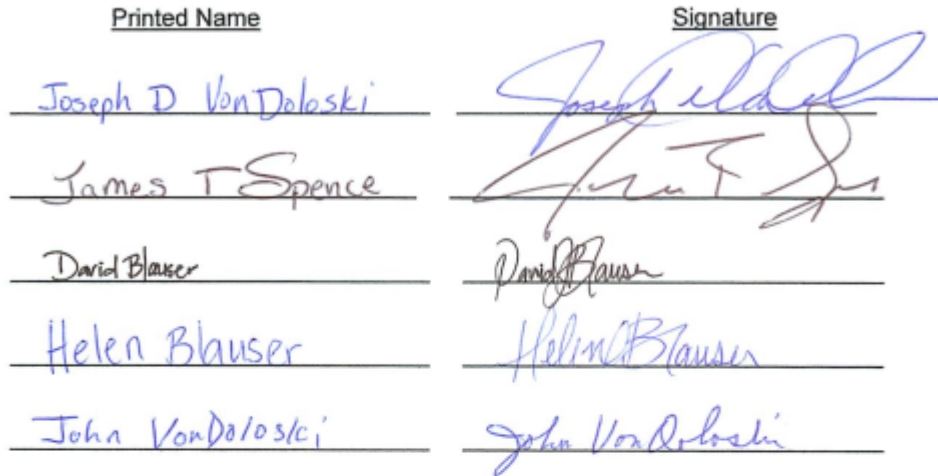 Printed Name Signature
Joseph D VonDoloski Joseph
James T Spence James T
David Blauser David J Blauser
Helen Blauser Helen J Blauser
John VonDoloski John VonDoloski